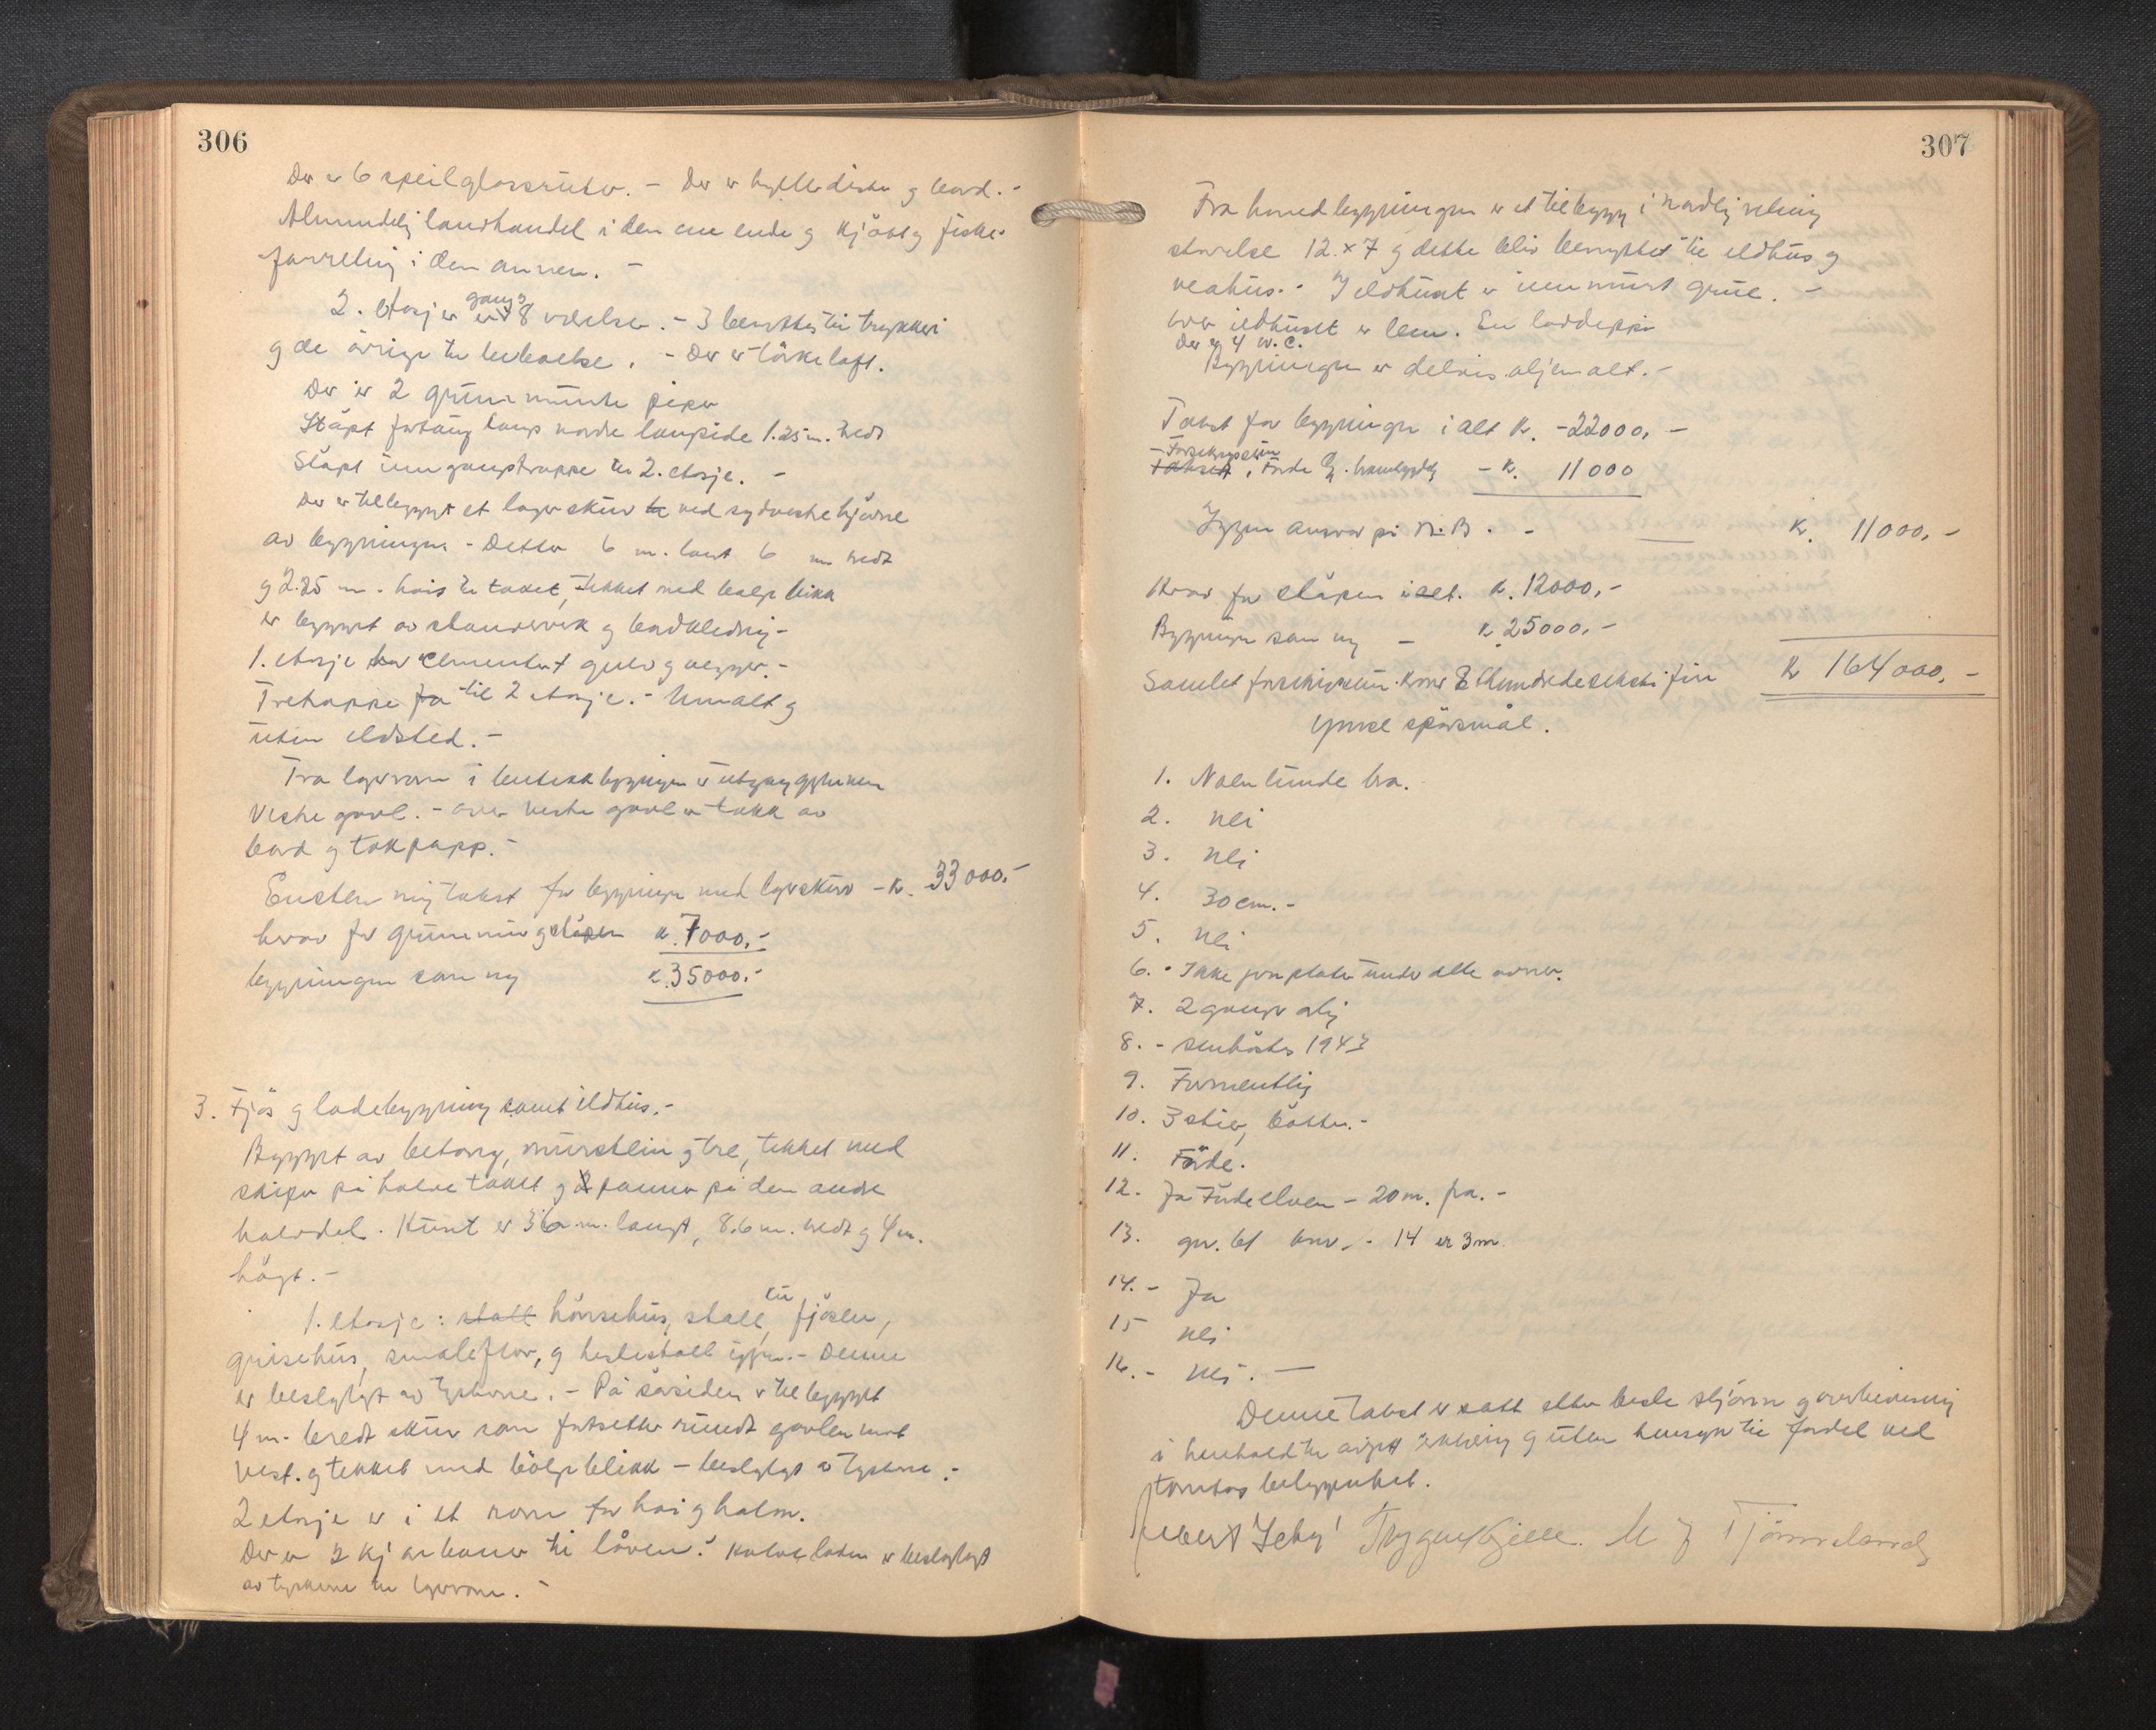 306
Der er 6 speilglassruter. - Der er hylle disker og bord. -
Almindelig landhandel i den ene ende og kjött og fiske-
forretning i den annen. -
2. etasje er gang og 8 værelser. - 3 benyttes til trykkeri
og de övrige til beboelse. - Der er törkeloft.
Der er 2 grunnmurte piper
Stöpt fortaug langs nordre langside 1.25 m. bredt
Stöpt inngangstrappe til 2. etasje. -
Der er tilbygget et lagerskur ved sydvestre hjörne
av bygningen. - Dette 6 m. langt 6 m bredt
og 2.25 m. höis til taket, tekket med bölgeblikk
er bygget av stenderverk og bordkledning -
1. etasje har cementert gulv og vegger. -
Tretrappe fra til 2 etasje. - Umalt og
uten ildsted. -
Fra lagerrom i butikkbygningen er utgang gjennem
Vestre gavl. - over vestre gavl er takk av
bord og takpapp. -
Ensten mig takst for bygningen med lagerskur - Kr. 33000.-
hvorav for grunnmur og stöpen kr. 7000.-
bygningen som ny kr. 35000.-
3. Fjös og ladebygning samt ildhus. -
Bygget av betong, murstein og tre, tekket med
skifer på halve taket og panner på den andre
halvdel. Huset er 36 m. langt, 8.6 m. bredt og 4 m.
högt. -
1. etasje: stall hönsehus, stall, til fjöset,
grisehus, smaleflor, og hestestall igjen. - Denne
er beslaglagt av tyskerne. - På sörsiden er tilbygget
4 m. bredt skur som fortsetter rundt gavlen mot
Vest. og tekket med bölgeblikk - beslaglagt av Tyskerne. -
2 etasje er i et rom for höi og halm.
Der er 2 kjörebroer til låven. Halve laden er beslaglagt
av tyskerne til lagerrom. -
307
Fra hovedbygningen er et tilbygg i nordlig retning
størrelse 12 x 7 og dette blir benyttet til ildhus og
vedhus. - I eldhuset er innmurt grue. -
over ildhuset er lem. En
Der er 4 w.c.
Bygningen er delvis oljemalt. -
Takst for bygningen i alt kr. - 22000. -
Forsikringssum
Taksert i Förde brandtrygdelag - kr. 11000
Ingen ansvar på N.B. - - Kr. 11000.-
Herav for stöpen i alt. kr. 12000.-
Bygningen som ny - kr. 25000.-
Samlet forsikringssum kroner Et hundredesekstifire Kr 164000.-
Ymse spörsmål.
1. Noenlunde bra.
2. nei
3. nei
4. 30 cm. -
5. nei
6. - Ikke jernplater under alle ovner.
7. 2 ganger årlig
8. - senhöstes 1947
9. Formentlig
10. 3 stier, bötter. -
11. Förde.
12. Ja Fördeelven - 20 m. fra. -
13. gr. bl. bnr. - 14 er 3 m.
14. - Ja
15 nei
16. - nei. -
Denne takst er satt etter beste skjönn og overbevisning
i henhold til avgitt erklæring og uten hensyn til fordel ved
tomtas beliggenhet.
Trygve Kjelle. M J Tjönneland